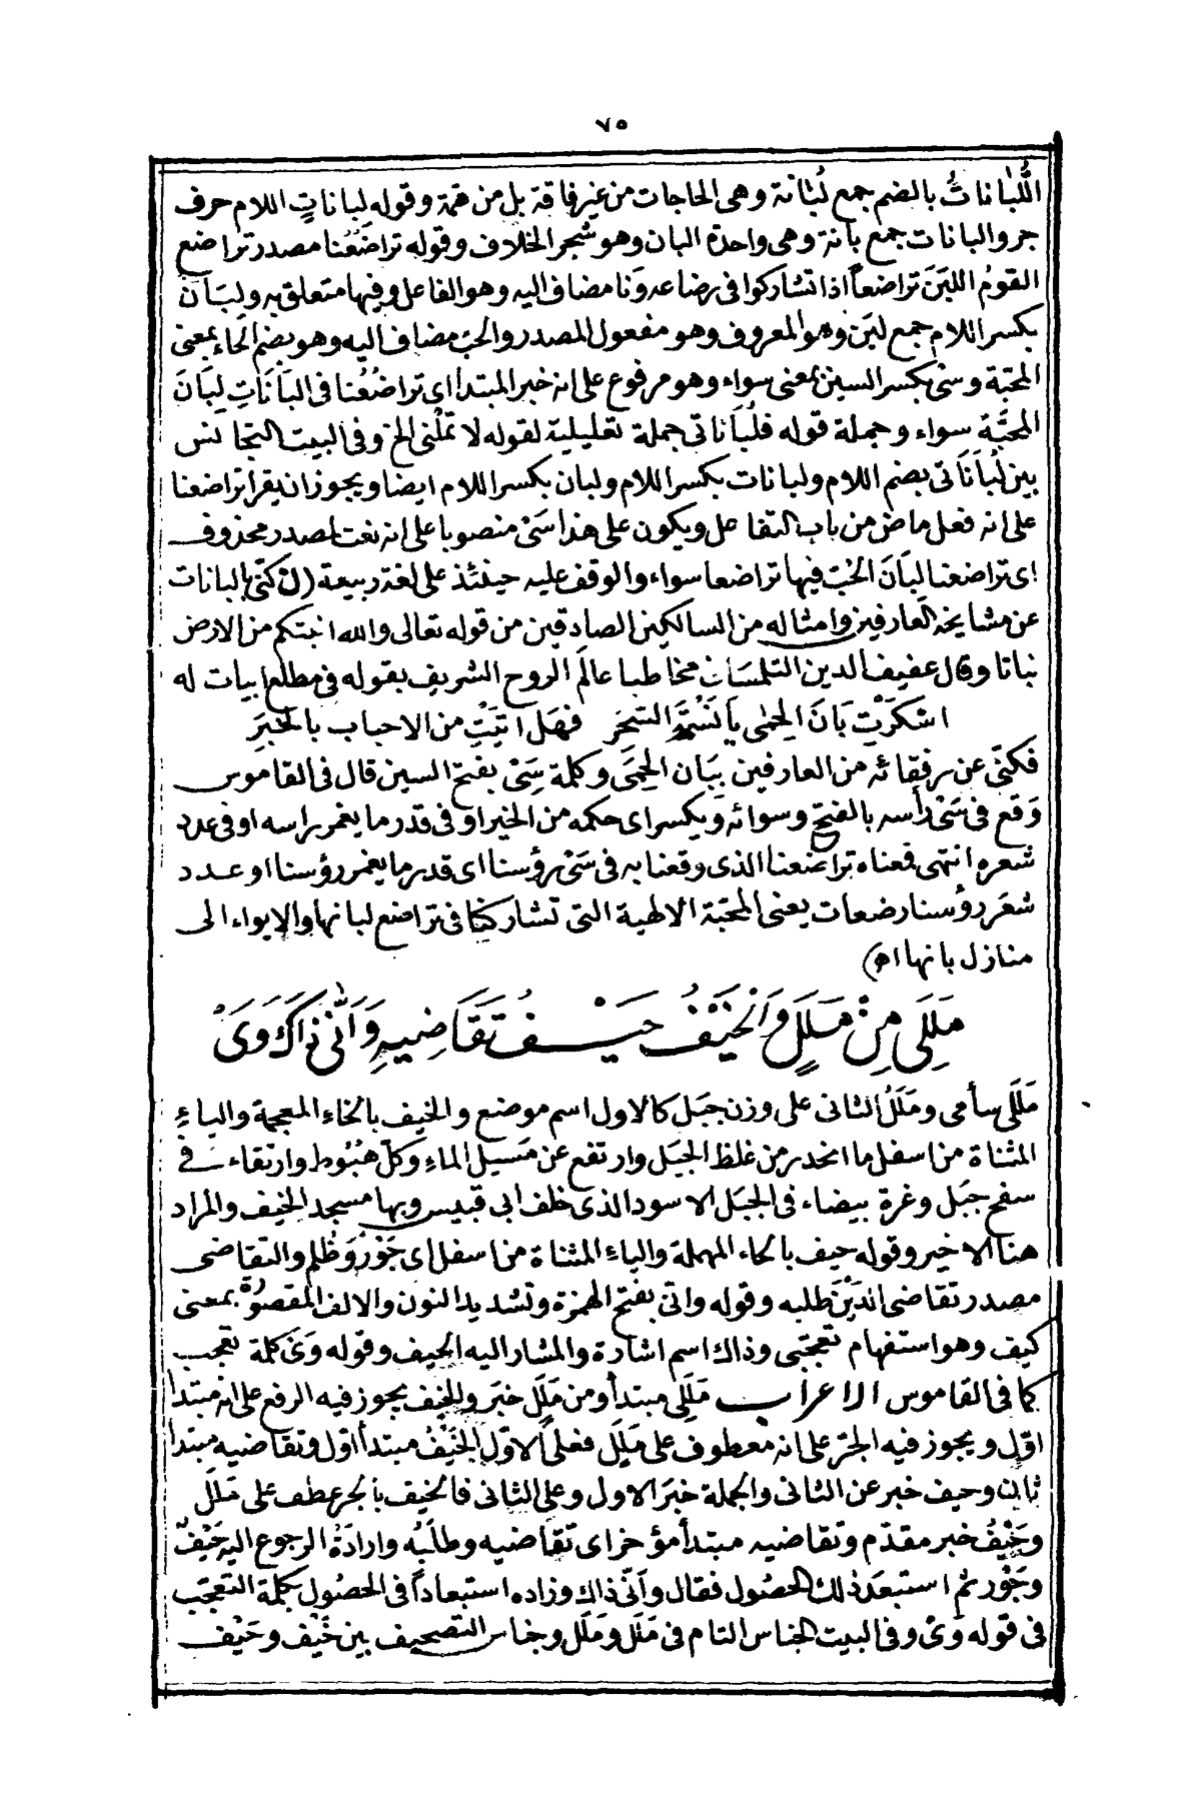 ٧٥
اللُّبانات بالضم جمع لُبَانة وهى الحاجات من غير فاقة بل من همة وقوله لِباناتٍ اللام حرف
جر والبانات جمع بانة وهى واحدة البان وهو شجر الخلاف وقوله تراضُعُنا مصدر تراضع
القومُ اللبَنَ تراضعاً اذا تشاركوا فى رضاعه ونا مضاف اليه وهو الفاعل وفيها متعلق به ولِبَانَ
بكسر اللام جمع لبَن وهو المعروف وهو مفعول المصدر والحبّ مضاف اليه وهو بضم الحاء بمعنى
المحبّة وسىّ بكسر السين بمعنى سواء وهو مرفوع على انه خبر المبتدأ اى تراضُعُنا فى البَانَاتِ لِبَانَ
المحبَّة سواء وجملة قوله فلُبَاناتى جملة تعليلية لقوله لا تملْنى الخ وفى البيت التجانس
بين لُبَانَاتى بضم اللام ولبانات بكسر اللام ولبان بكسر اللام ايضا ويجوز ان يقرأ تراضعنا
على انه فعل ماض من باب التفاعل ويكون على هذا سَىّ منصوبا على انه نعت لمصدر محذوف
اى تراضعنا لبَانَ الحُبّ فيها تراضعا سواء والوقف عليه حينئذ على لغة ربيعة (ن كنّى بالبانات
عن مشايخه العارفين وامثاله من السالكين الصادقين من قوله تعالى والله انبتكم من الارض
نباتا وقال عفيف الدين التلمسانى مخاطبا عالَم الروح الشريف بقوله فى مطلع ابيات له
اسْكَرْتِ بَانَ الحِمٰى يا نَسْمَةَ السَّحَرِ فهَل اتَيْتِ من الاحباب بالخبَرِ
فكنّى عن رفقائه من العارفين ببَان الحِمَى وكلمة سَىْ بفتح السين قال فى القاموس
وَقع فى سَىّ رأسه بالفتح وسوائه ويكسر اى حكمه من الخير او فى قدر ما يغمر براسه او فى عدد
شعره انتهى فمعناه تراضعنا الذى وقعنا به فى سَىّ رؤسنا اى قدر ما يغمر رؤسنا او عدد
شعَر رؤسنا رضعات يعنى المحبّة الالهية التى تشاركنا فى تراضع لبانها والايواء الى
منازل بانها اﻫ)
مَلَلِى مِنْ مَلَلٍ وَالخَيْفُ حَيْفٌ تَقَاضِيهِ وَأَنَّى ذَاكَ وَىْ
مَلَلى سأمى ومَلَلُ الثانى على وزن جبَل كالاول اسم موضع والخيف بالخاء المعجمة والياءِ
المثناة من اسفل ما انحدر من غلظ الجبَل وارتفع عن مَسيل الماءِ وكلّ هُبُوط وارتقاء فى
سفح جبَل وغرة بيضاء فى الجبَل الاسود الذى خلف ابى قبيس وبها مسجد الخيف والمراد
هنا الاخير وقوله حيف بالحاء المهملة والياء المثناة من اسفل اى جَوْر وَظُلم والتقاضى
مصدر تقاضى الدَّيْنَ طلبه وقوله وانّى بفتح الهمزة وتشديد النون والالف المقصورة بمعنى
كيف وهو استفهام تعجّبى وذاك اسم اشارة والمشار اليه الخيف وقوله وَىْ كلمة تعجب
كما فى القاموس الاعراب مَلَلِى مبتدأ ومن مَلَلٍ خبَر والخيف يجوز فيه الرفع على انه مبتدا
اوّل ويجوز فيه الجرّ على انه معطوف على مَلَلٍ فعلى الاوّل الخَيْفُ مبتدأ اوّل وتقاضيه مبتدأ
ثانٍ وحيف خبر عن الثانى والجملة خبَر الاول وعلى الثانى فالخيف بالجر عطف على مَلَلٍ
وحَيْفُ خبر مقدّم وتقاضيه مبتدأ مؤخر اى تَقَاضيه وطَلَبُه وارادَةُ الرجوع اليه حَيْفٌ
وجَوْر ثم استبعَدَ ذلك الحصُول فقال وأَنّى ذاك وزاده استبعاداً فى الحصُول بكلمة التعجّب
فى قوله وَىْ وفى البيت الجناس التام فى مَلَل ومَلَل وجناس التصحيف بين خَيْف وحَيْف